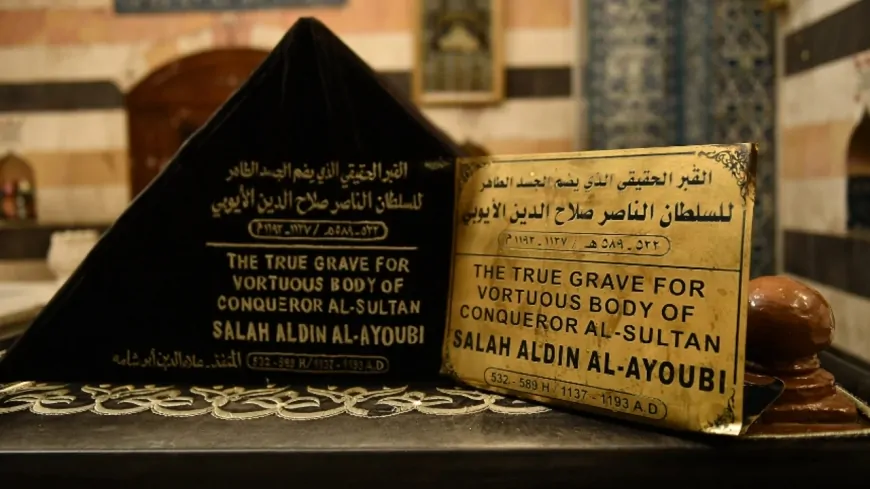 القبر الحقيقي الذي يضم الجسد الطاهر
للسلطان الناصر صلاح الدين الأيوبي
٥٣٢ - ٥٨٩ هـ / ١١٣٧ - ١١٩٣ م
THE TRUE GRAVE FOR
VORTUOUS BODY OF
CONQUEROR AL-SULTAN
SALAH ALDIN AL-AYOUBI
532 - 589 H / 1137 - 1193 A.D
القبر الحقيقي الذي يضم الجسد الطاهر
للسلطان الناصر صلاح الدين الأيوبي
٥٣٢ - ٥٨٩ هـ / ١١٣٧ - ١١٩٣ م
THE TRUE GRAVE FOR
VORTUOUS BODY OF
CONQUEROR AL-SULTAN
SALAH ALDIN AL-AYOUBI
532 - 589 H - 1137 - 1193 A.D